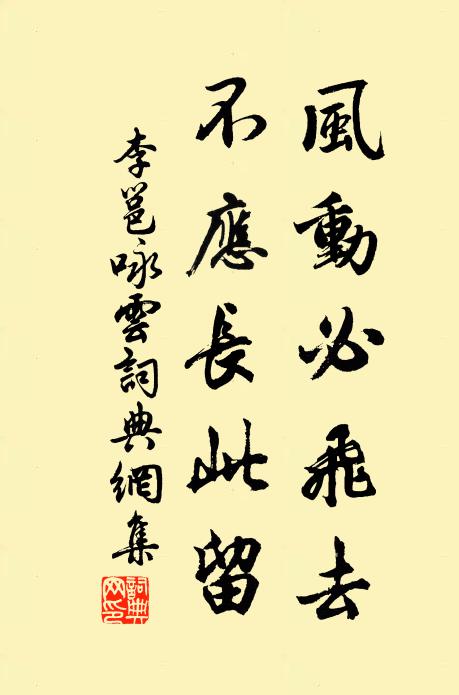 風動必飛去
不應長此留
李邕咏雲詞典網集
詞典
网印